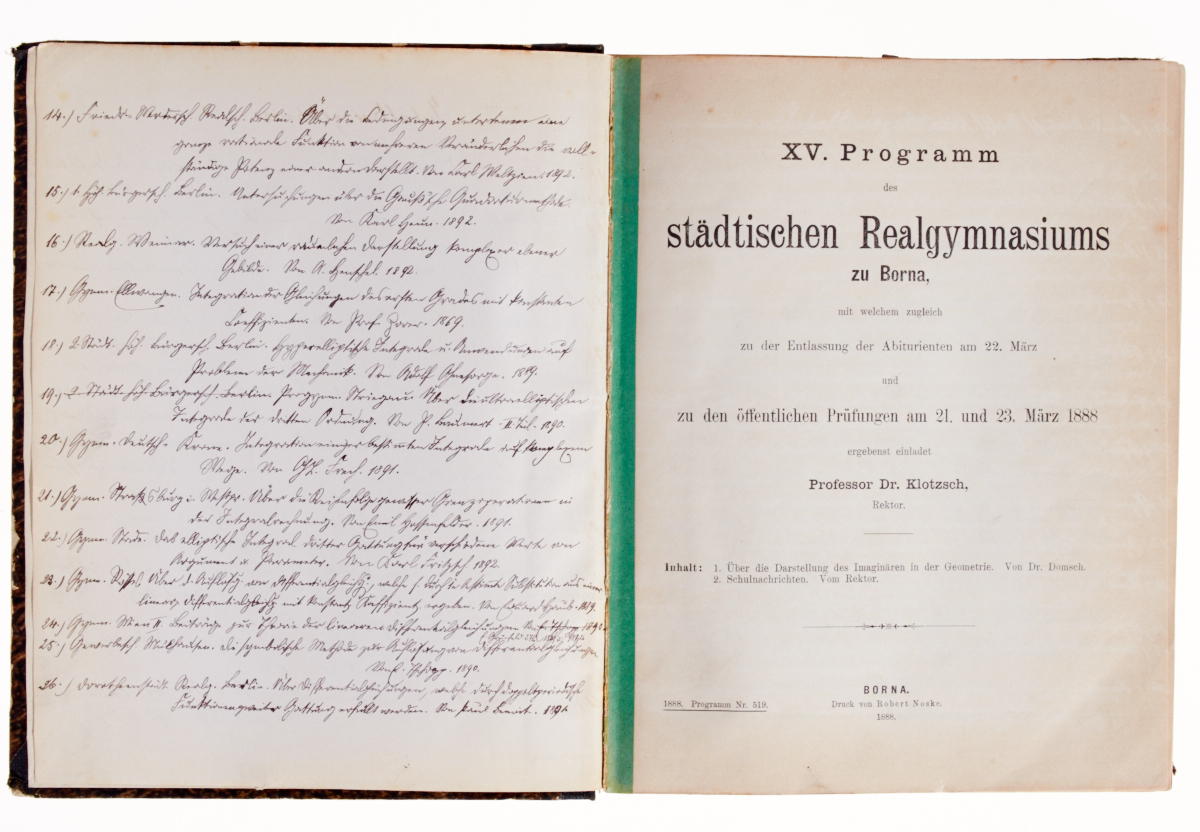 14.) Friedr. Werdersch. Realsch. Berlin. Über die Bedingungen, unter denen eine
ganze rationale Funktion von mehreren Veränderlichen die voll-
ständige Potenz einer andern darstellt. Von Karl Weltzien. 1892.
15.) 1. Höh. Bürgersch. Berlin. Untersuchungen über die Gauß'sche Quadraturmethode.
Von Karl Heun. 1892.
16.) Realg. Weimar. Versuch einer räumlichen Darstellung komplexer ebener
Gebilde. Von A. Henschel. 1892.
17.) Gymn. Ellwangen. Integration der Gleichungen des ersten Grades mit konstanten
Coeffizienten. Von Prof. Zorer. 1869.
18.) 2. Städt. höh. Bürgersch. Berlin. Hyperelliptische Integrale u. Anwendungen auf
Probleme der Mechanik. Von Adolf 1889.
19.) 2. Städt. höh. Bürgersch. Berlin. Progymn. Striegau. Über die ultraelliptischen
Integrale der dritten Ordnung. Von P. II. Teil. 1890.
20.) Gymn. Deutsch-Krone. Integration einiger bestimmten Integrale auf komplexem
Wege. Von 1891.
21.) Gymn. Strasburg i. Westpr. Über die Reihenfolge gewisser Grenzoperationen in
der Integralrechnung. Von Emil Hossenfelder. 1891.
22.) Gymn. Stade. Das elliptische Integral dritter Gattung für verschiedene Werte von
Argument u. Parameter. Von Karl Fritzsch 1892.
23.) Gymn. Über d. Auflösg. von Differentialgleichg., welche sich durch bestimmte Substitution aus einer
linear. Differentialgleichg. mit konstant. Koeffizient. ergeben. Von 1889.
24.) Gymn. Wien II. Beiträge zur Theorie der linearen Differentialgleichungen. Von 1892
25.) Gewerbesch. Mülhausen. Die symbolische Methode zur Auflösung von Differentialgleichungen.
Von E. 1890.
26.) Dorotheenstädt. Realg. Berlin. Über Differentialgleichungen, welche durch doppeltperiodische
Funktionen zweiter Gattung erfüllt werden. Von Paul Benoit. 1891
XV. Programm
des
städtischen Realgymnasiums
zu Borna,
mit welchem zugleich
zu der Entlassung der Abiturienten am 22. März
und
zu den öffentlichen Prüfungen am 21. und 23. März 1888
ergebenst einladet
Professor Dr. Klotzsch,
Rektor.
Inhalt: 1. Über die Darstellung des Imaginären in der Geometrie. Von Dr. Domsch.
2. Schulnachrichten. Vom Rektor.
1888. Programm Nr. 519.
BORNA.
Druck von Robert Noske.
1888.